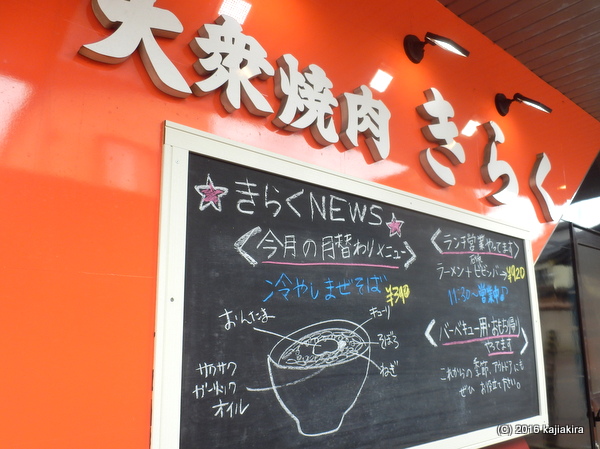 大衆焼肉 きらく
きらくNEWS
今月の月替わりメニュー
冷やしまぜそば
¥390
おんたま
キューリ
そぼろ
ねぎ
サクサク
ガーリック
オイル
ランチ営業やってます
ラーメン+ビビンバ→¥920
11:30〜営業中♪
バーベキュー用・お持ち帰り
やってます
これからの季節、アウトドアにも
ぜひ お役立て下さい。
(c) 2016 kajiakira